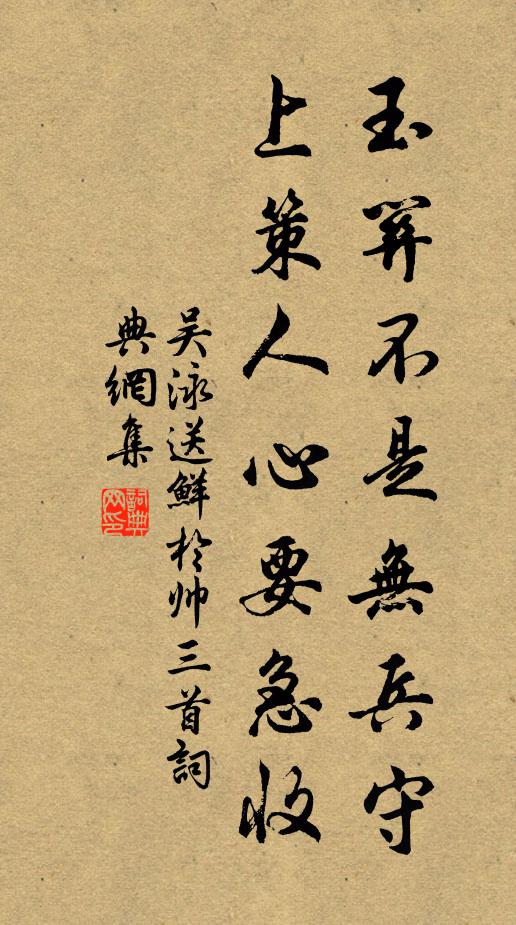 玉關不是無兵守
上策人心要急收
吳泳送鮮於帥三首詞
典網集
詞典
网印